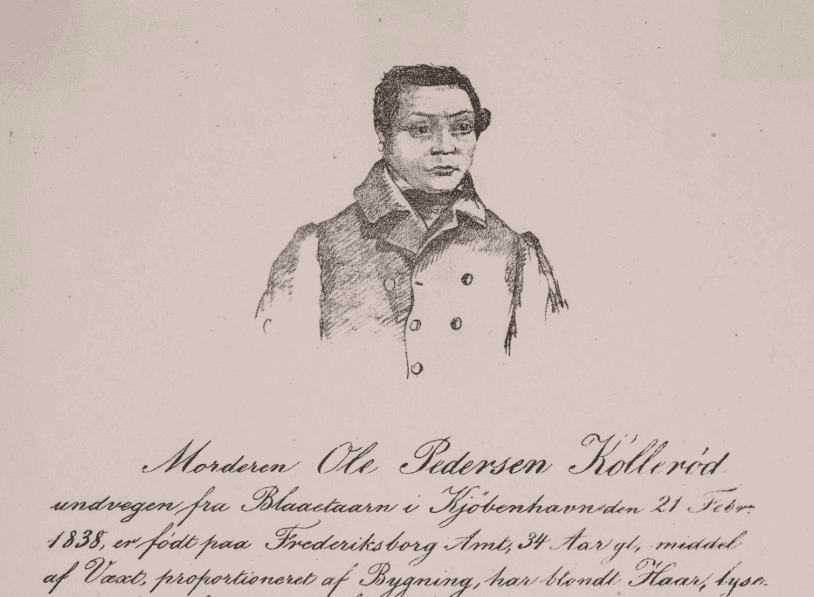 Morderen Ole Pedersen Kölleröd
undvegen fra Blaaetaarn i Kjöbenhavn den 21 Febr.
1838, er födt paa Frederiksborg Amt, 34 Aar gl, middel
af Væxt, proportioneret af Bygning, har blondt Haar, lyse